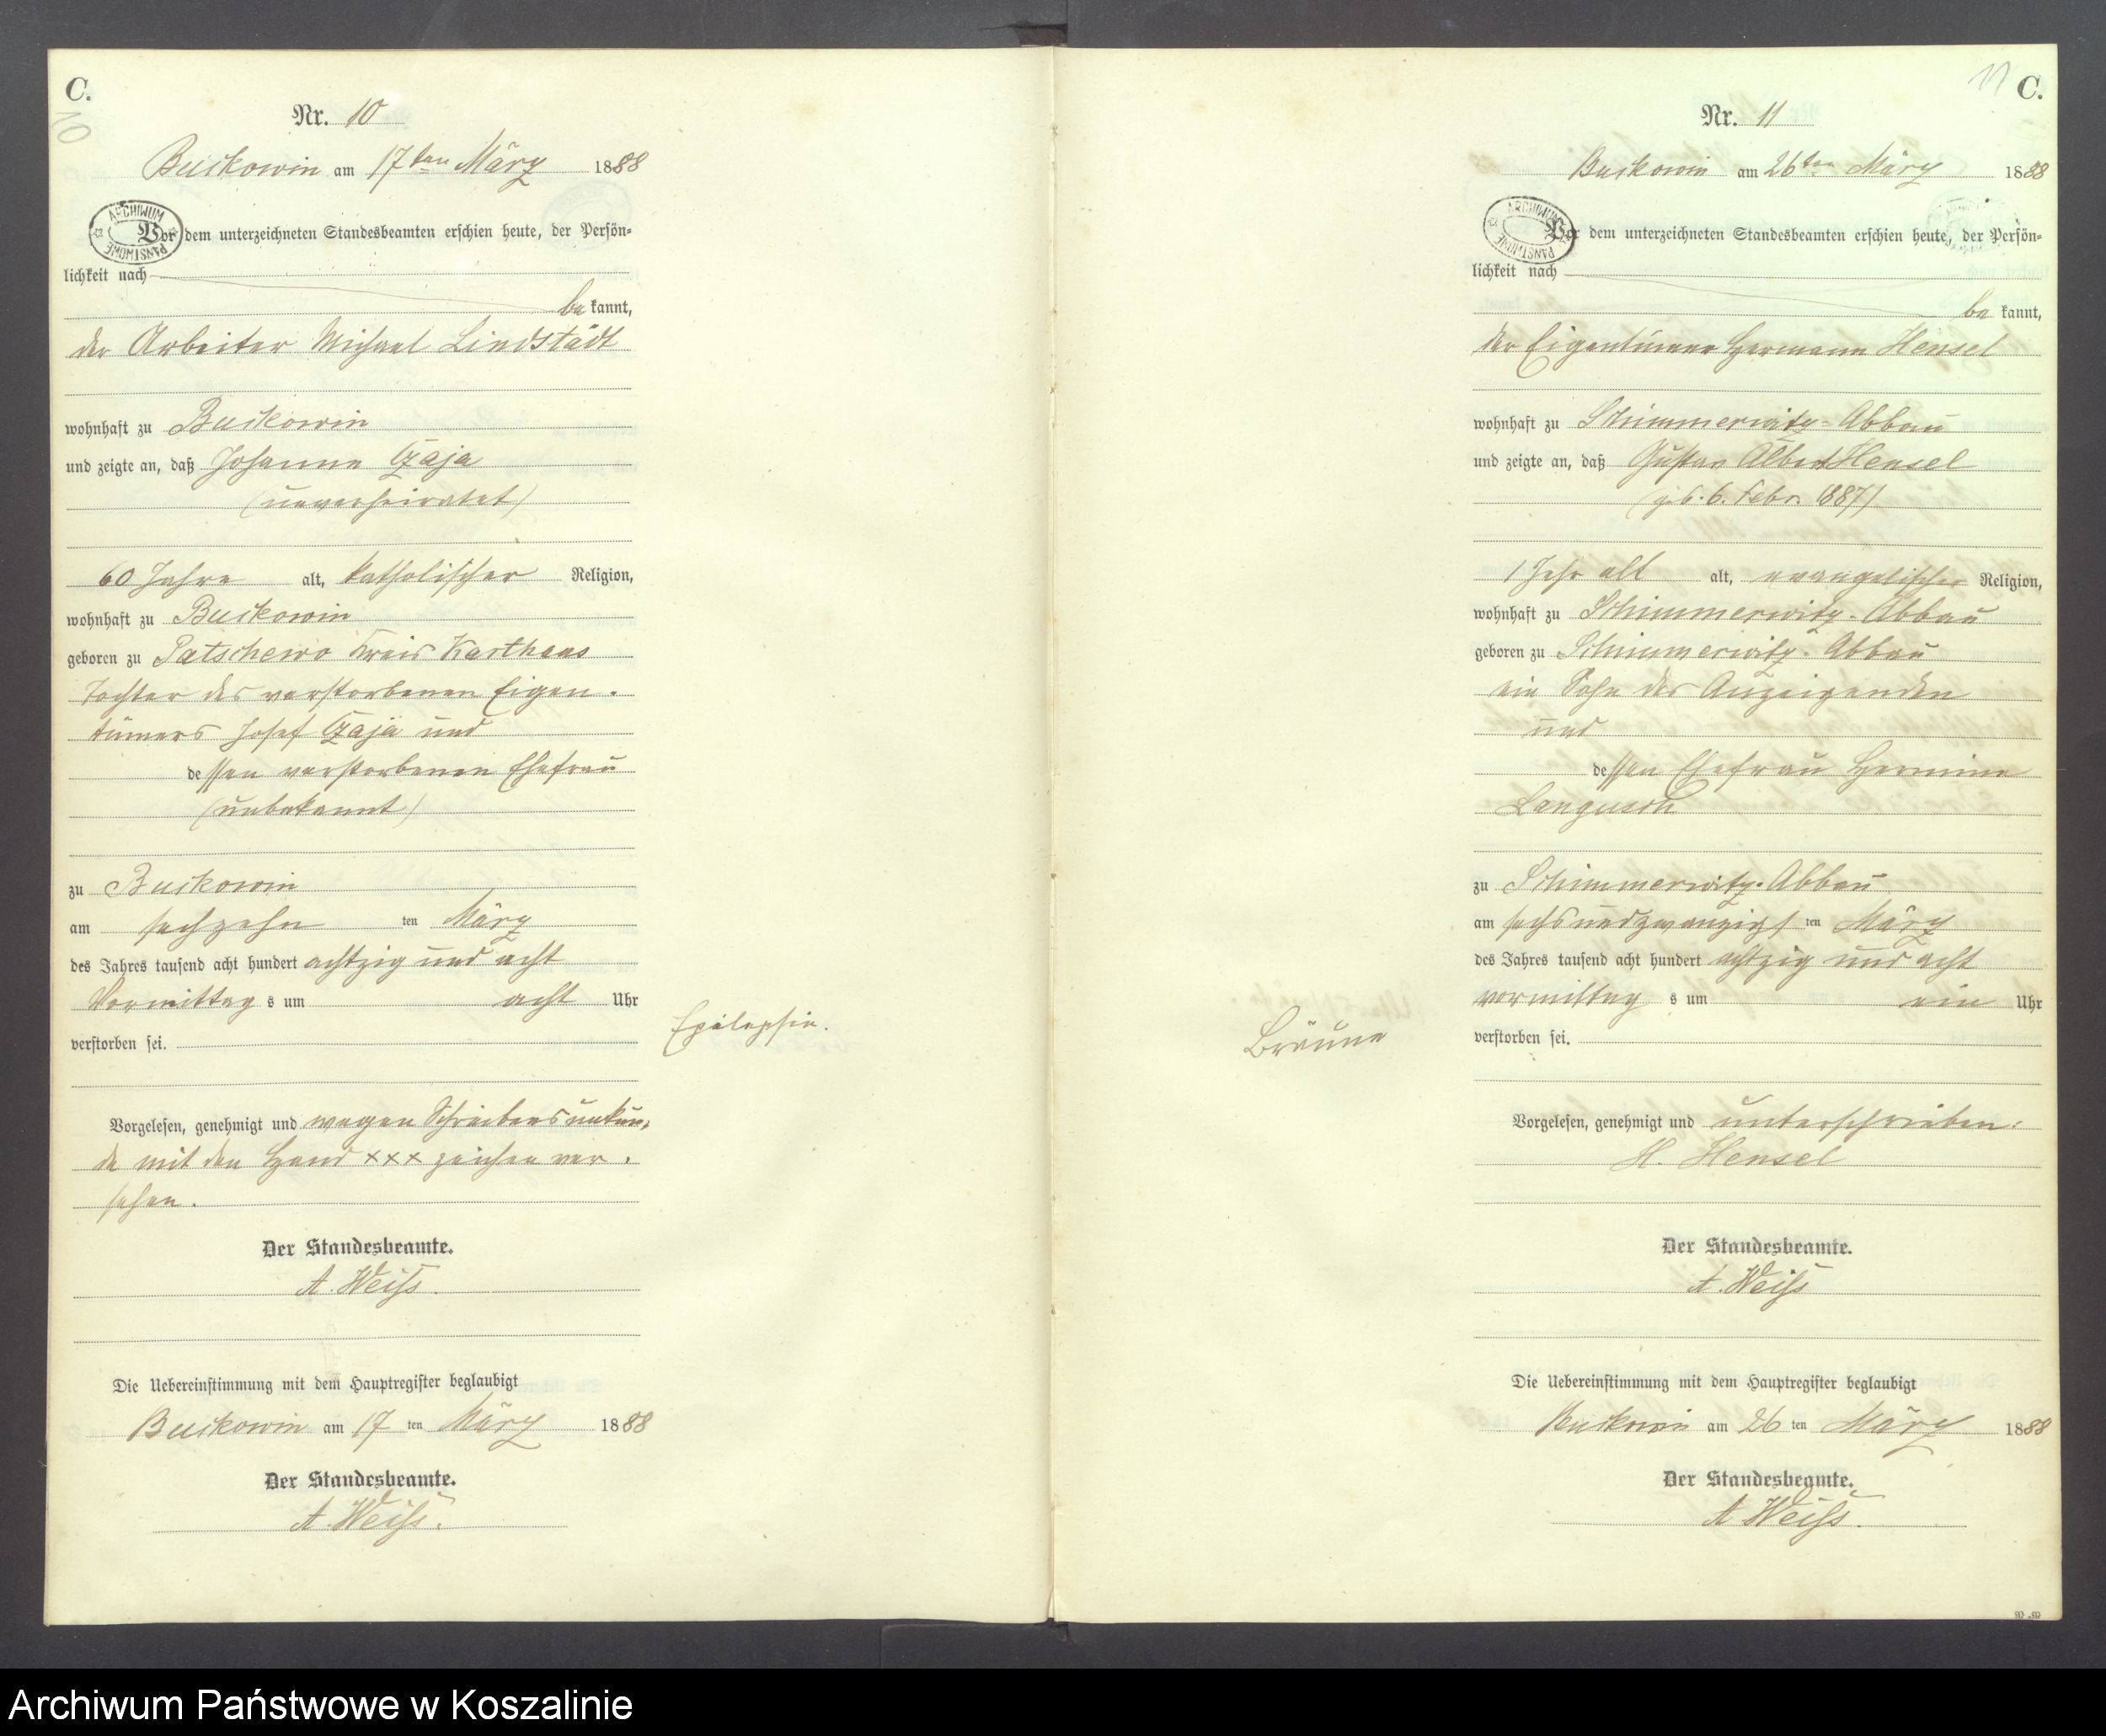 C.
10
Nr. 10
Buckowin am 17ten März 1888
ARCHIWUM PAŃSTWOWE
Vor dem unterzeichneten Standesbeamten erschien heute, der Persön-
lichkeit nach
be kannt,
der Arbeiter Michael Lindstädt
wohnhaft zu Buckowin
und zeigte an, daß Johanna Czaja
(unverheiratet)
60 Jahre alt, katholischer Religion,
wohnhaft zu Buckowin
geboren zu Patschewo Kreis Karthaus
Tochter des verstorbenen Eigen-
tümers Josef Czaja und
dessen verstorbenen Ehefrau
(unbekannt)
zu Buckowin
am sechzehn ten März
des Jahres tausend acht hundert achtzig und acht
Vormittag s um acht Uhr
verstorben sei.
Epilepsie.
Vorgelesen, genehmigt und wegen Schreibensunkun-
de mit den Hand xxx zeichen ver-
sehen.
Der Standesbeamte.
A. Weiß.
Die Uebereinstimmung mit dem Hauptregister beglaubigt
Buckowin am 17 ten März 1888
Der Standesbeamte.
A. Weiß.
11
C.
Nr. 11
Buckowin am 26ten März 1888
ARCHIWUM PAŃSTWOWE
Vor dem unterzeichneten Standesbeamten erschien heute, der Persön-
lichkeit nach
be kannt,
der Eigentümer Hermann Hensel
wohnhaft zu Schimmerwitz-Abbau
und zeigte an, daß Gustav Albert Hensel
(geb. 6. Febr. 1887)
1 Jahr alt alt, evangelischer Religion,
wohnhaft zu Schimmerwitz-Abbau
geboren zu Schimmerwitz-Abbau
ein Sohn des Anzeigenden
und
dessen Ehefrau Hermine
Langusch
zu Schimmerwitz-Abbau
am sechsundzwanzigs ten März
des Jahres tausend acht hundert achtzig und acht
vormittag s um ein Uhr
verstorben sei.
Bräune
Vorgelesen, genehmigt und unterschrieben.
H. Hensel
Der Standesbeamte.
A. Weiß
Die Uebereinstimmung mit dem Hauptregister beglaubigt
Buckowin am 26 ten März 1888
Der Standesbeamte.
A. Weiß.
Archiwum Państwowe w Koszalinie